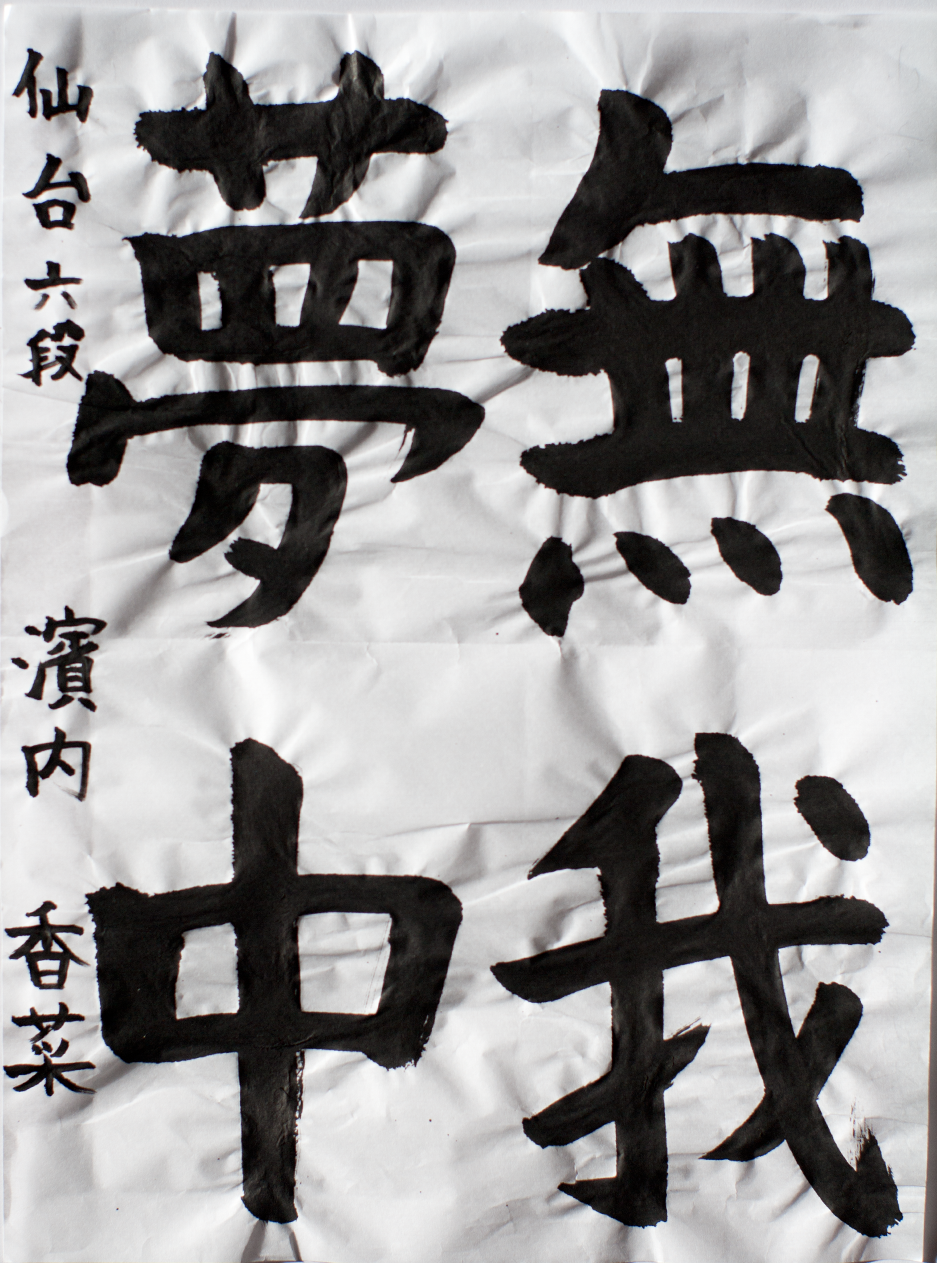 無我
夢中
仙台六段 濱内 香菜